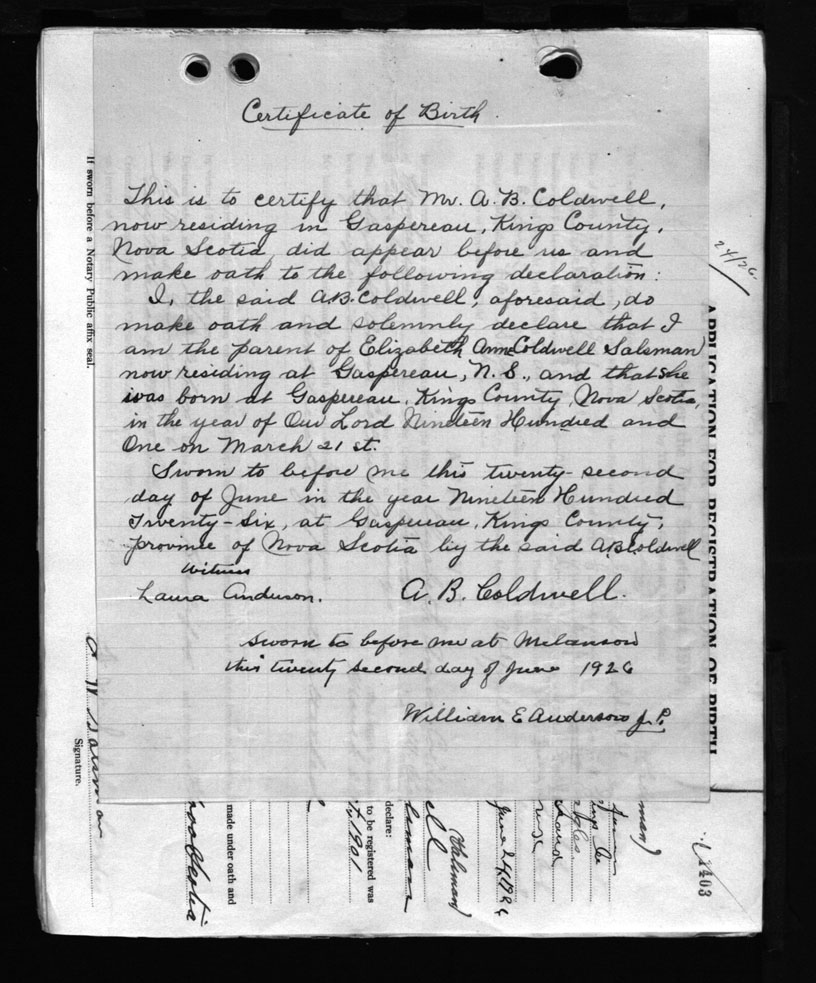 Certificate of Birth.
This is to certify that Mr. A. B. Coldwell,
now residing in Gaspereau, Kings County,
Nova Scotia, did appear before us and
make oath to the following declaration:
I, the said A.B. Coldwell, aforesaid, do
make oath and solemnly declare that I
am the parent of Elizabeth Ann Coldwell Salsman
now residing at Gaspereau, N.S., and that she
was born at Gaspereau, Kings County, Nova Scotia,
in the year of Our Lord Nineteen Hundred and
One on March 21 st.
Sworn to before me this twenty-second
day of June in the year Nineteen Hundred
Twenty-Six, at Gaspereau, Kings County,
province of Nova Scotia by the said A.B. Coldwell
Witness
Laura Anderson. A. B. Coldwell.
Sworn to before me at Melanson
this twenty second day of June 1926
William E Anderson J.P.
If sworn before a Notary Public affix seal.
Signature.
24/26.
APPLICATION FOR REGISTRATION OF BIRTH
made under oath and
to be registered was
declare:
1901
June 24, 1926
403